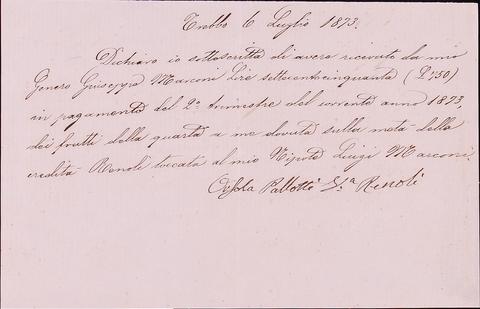 Trebbo 6 Luglio 1873.
Dichiaro io sottoscritta di avere ricevuto da mio
Genero Giuseppe Marconi Lire settecentocinquanta (£ 750)
in pagamento del 2° trimestre del corrente anno 1873,
dei frutti della quarta a me dovuta sulla metà della
eredità Renoli toccata al mio Nipote Luigi Marconi.
Pallotti Va Renoli